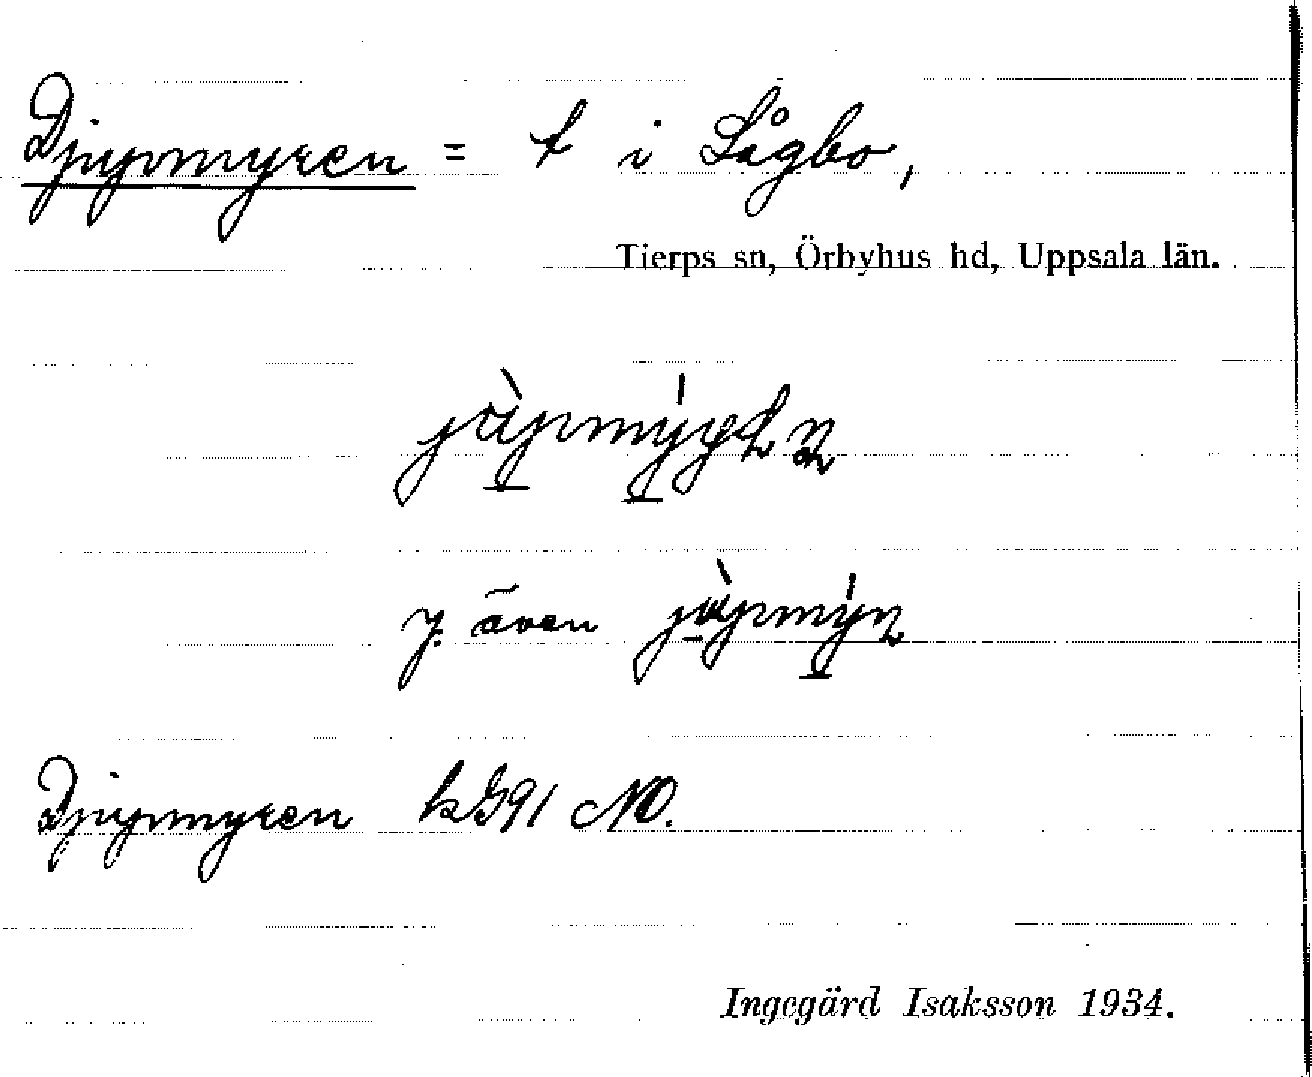 Djupmyren = t i Lågbo,
Tierps sn, Örbyhus hd, Uppsala län.
även
Djupmyren kG91 NO.
Ingegärd Isaksson 1934.